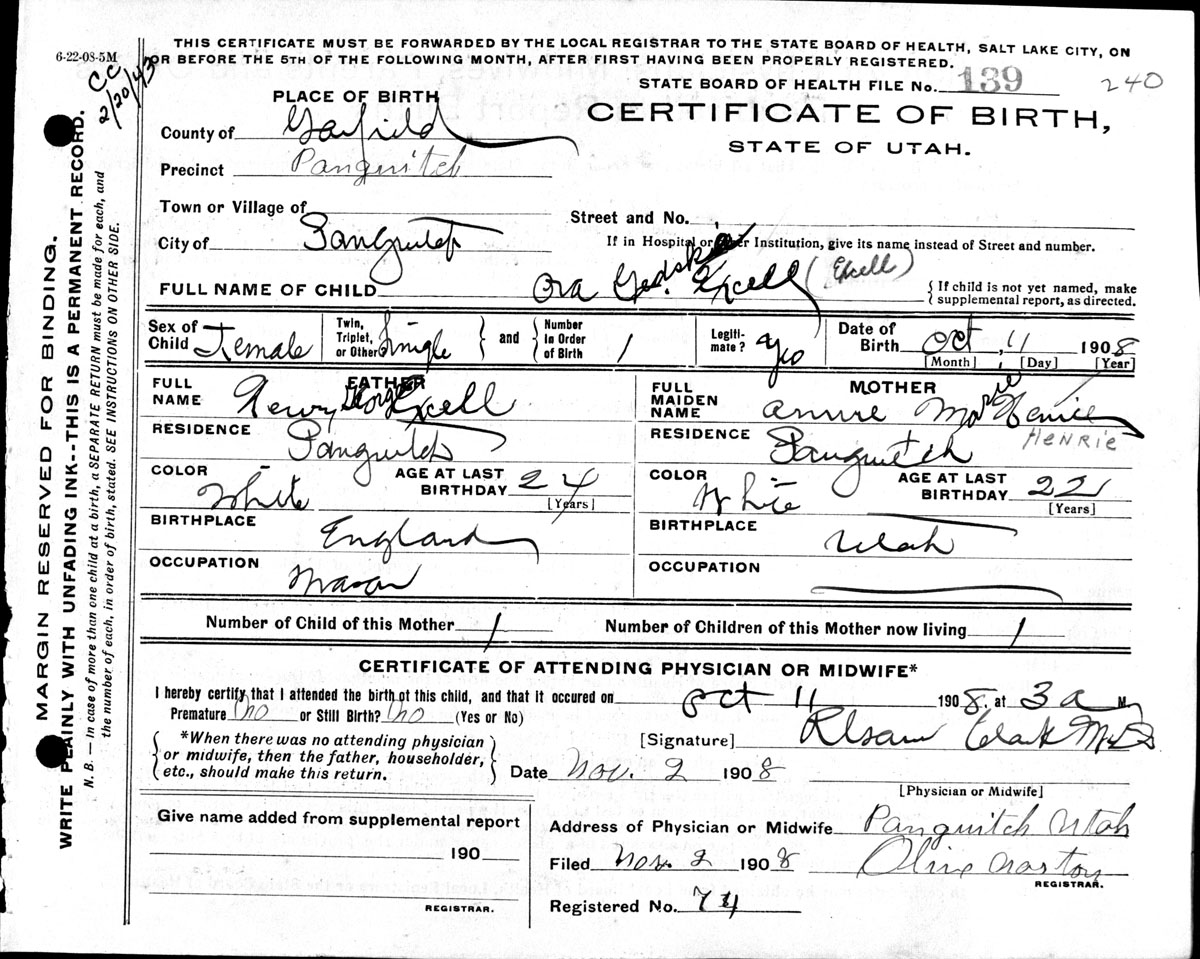 6-22-08-5M
THIS CERTIFICATE MUST BE FORWARDED BY THE LOCAL REGISTRAR TO THE STATE BOARD OF HEALTH, SALT LAKE CITY, ON
OR BEFORE THE 5TH OF THE FOLLOWING MONTH, AFTER FIRST HAVING BEEN PROPERLY REGISTERED.
CC 2/20/43
STATE BOARD OF HEALTH FILE No. 139 240
CERTIFICATE OF BIRTH,
STATE OF UTAH.
PLACE OF BIRTH
County of Garfield
Precinct Panguitch
Town or Village of
City of Panguitch
Street and No.
If in Hospital or other Institution, give its name instead of Street and number.
FULL NAME OF CHILD Ora Excell (Excell)
{ If child is not yet named, make
supplemental report, as directed.
Sex of Child Female
Twin, Triplet, or Other? Single
and
Number In Order of Birth 1
Legiti-mate? Yes
Date of Birth Oct, 11 1908
[Month] [Day] [Year]
FATHER
FULL NAME Henry George Excell
RESIDENCE Panguitch
COLOR White
AGE AT LAST BIRTHDAY 24
[Years]
BIRTHPLACE England
OCCUPATION Mason
MOTHER
FULL MAIDEN NAME Annie Marie Henrie
HENRIE
RESIDENCE Panguitch
COLOR White
AGE AT LAST BIRTHDAY 22
[Years]
BIRTHPLACE Utah
OCCUPATION
Number of Child of this Mother 1
Number of Children of this Mother now living 1
CERTIFICATE OF ATTENDING PHYSICIAN OR MIDWIFE*
I hereby certify that I attended the birth of this child, and that it occured on Oct 11 1908, at 3 a M,
Premature No or Still Birth? No (Yes or No)
*When there was no attending physician
or midwife, then the father, householder,
etc., should make this return.
[Signature] Clark
Date Nov. 2 1908
[Physician or Midwife]
Give name added from supplemental report
190
REGISTRAR.
Address of Physician or Midwife Panguitch Utah
Filed Nov. 2 1908 Olive Norton
REGISTRAR.
Registered No. 74
MARGIN RESERVED FOR BINDING.
WRITE PLAINLY WITH UNFADING INK--THIS IS A PERMANENT RECORD.
N. B. — In case of more than one child at a birth, a SEPARATE RETURN must be made for each, and
the number of each, in order of birth, stated. SEE INSTRUCTIONS ON OTHER SIDE.